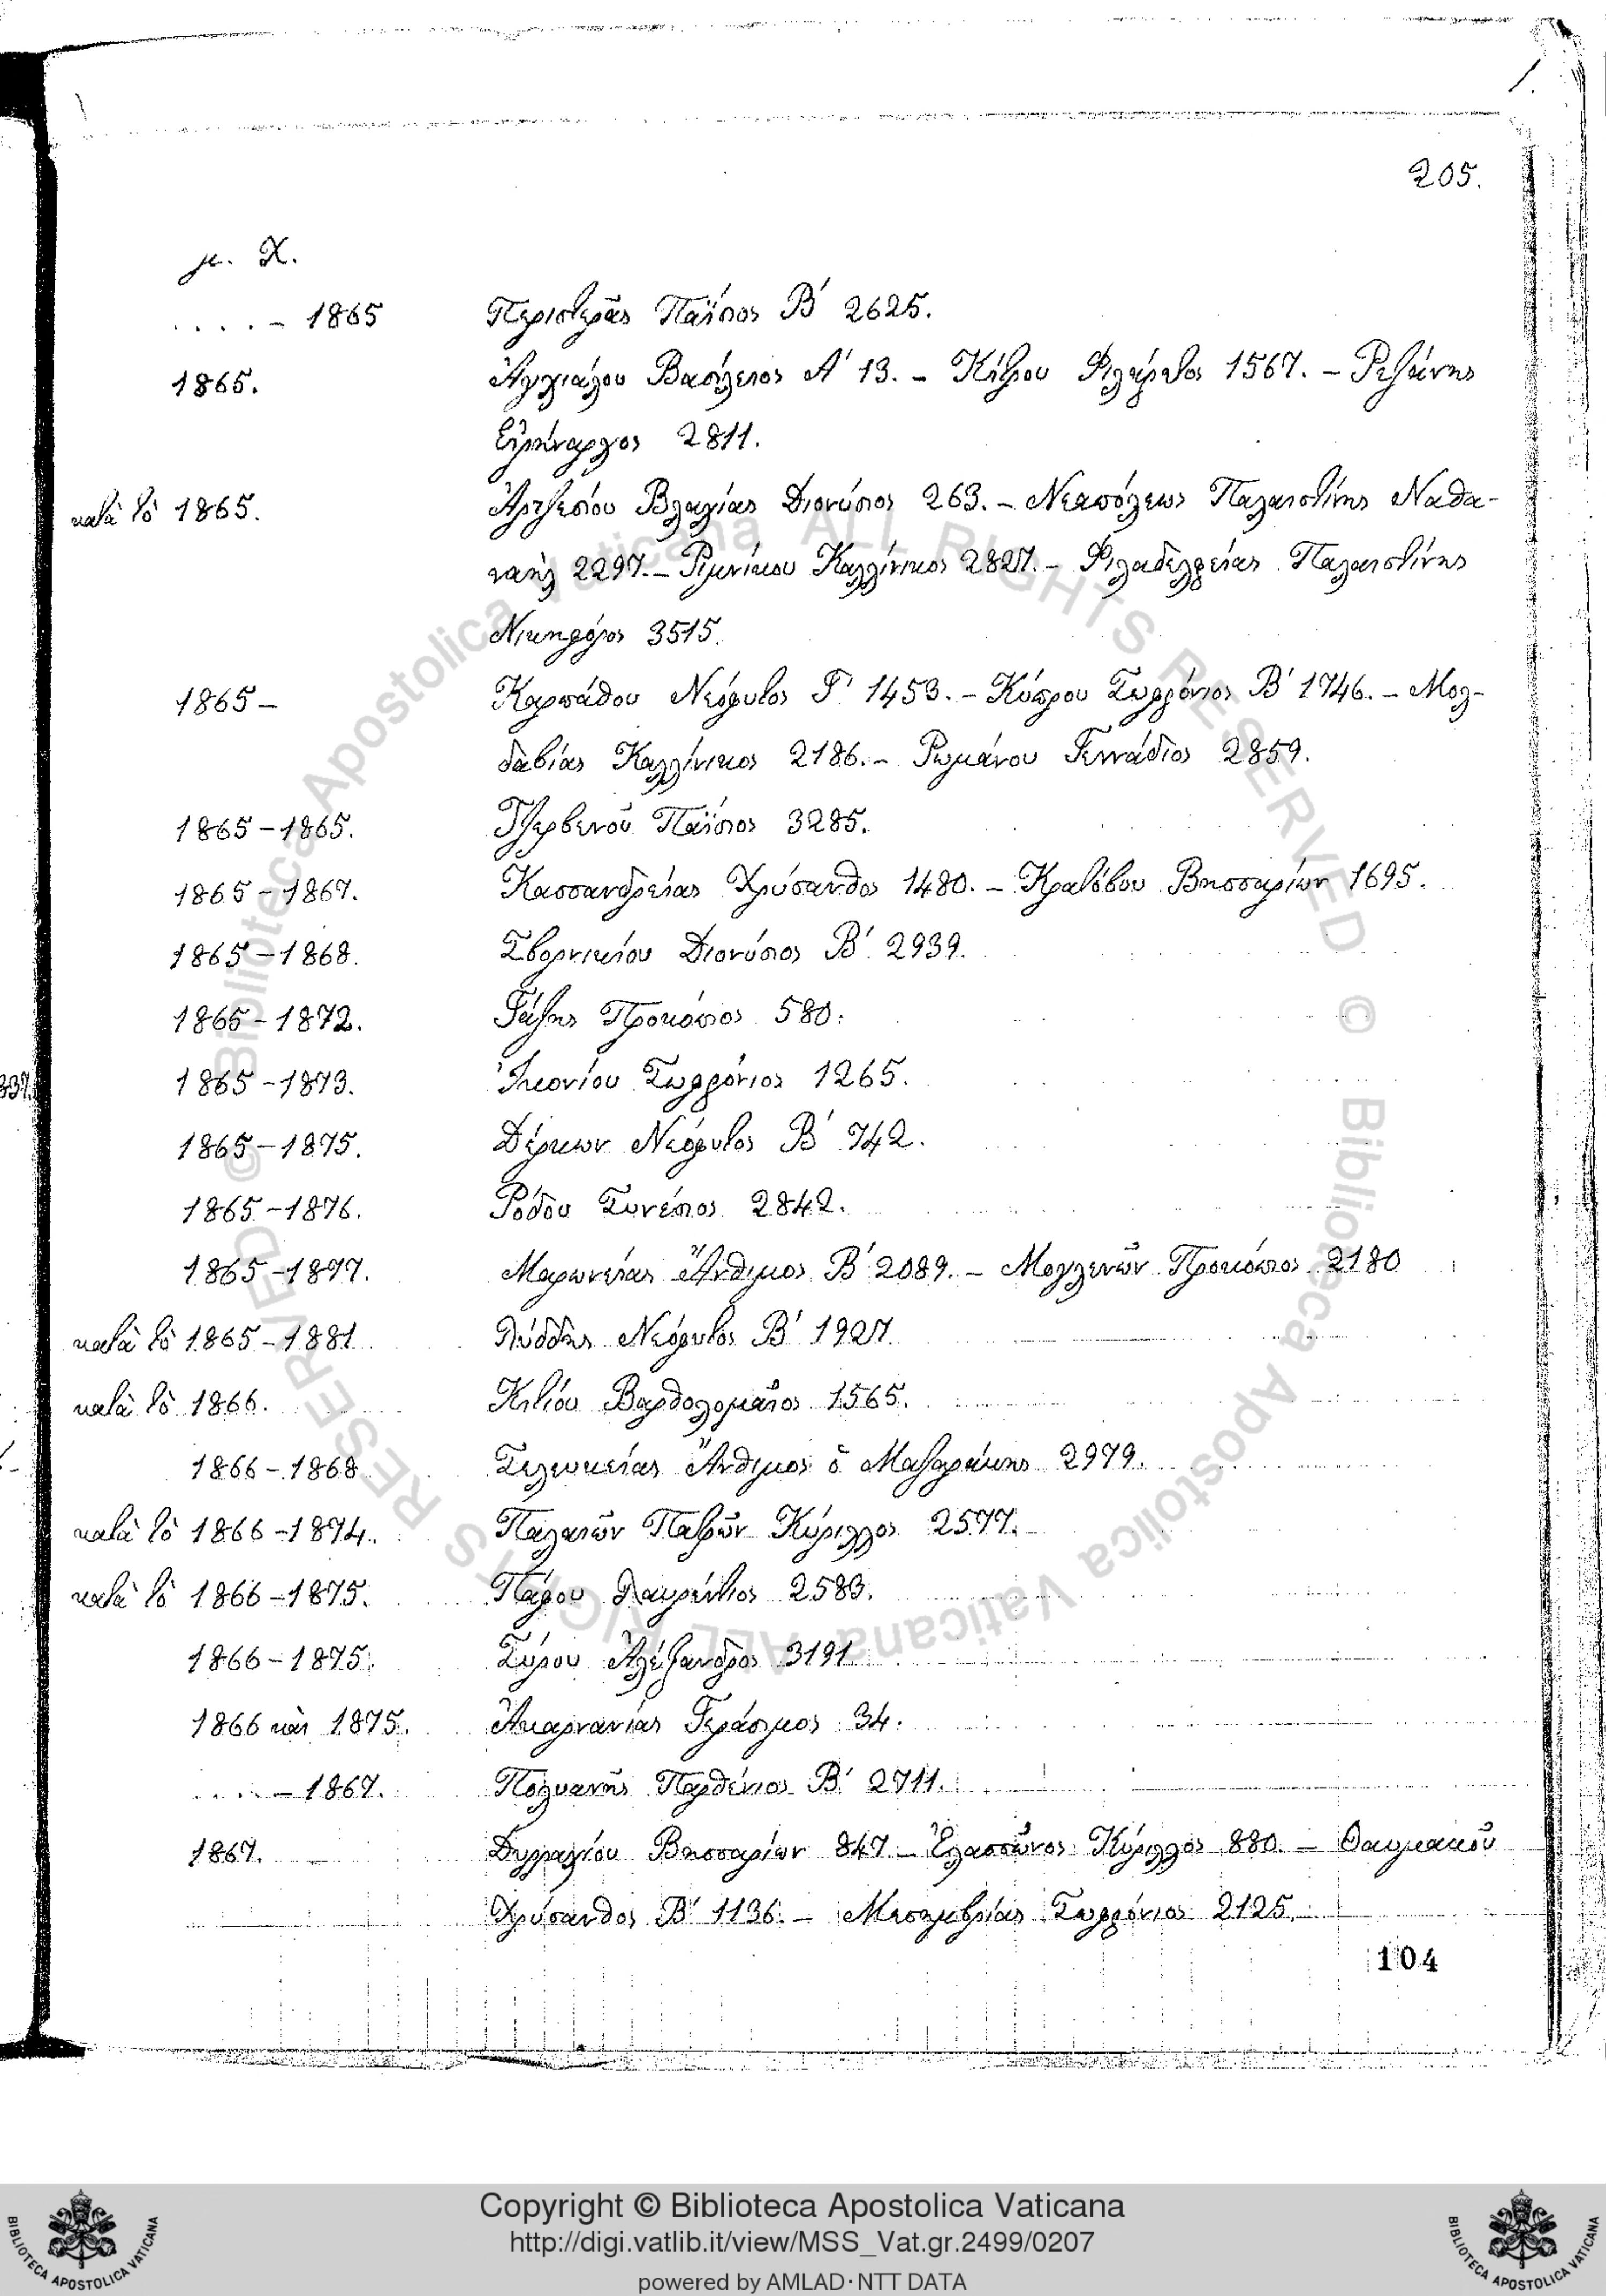 205.
μ. Χ.
. . . . - 1865 Περιστερᾶς Παΐσιος Β΄ 2625.
1865. Ἀγχιάλου Βασίλειος Α΄ 13. - Κίτρου Φιλάρετος 1567. - Ῥεζάνης
Εἰρήναρχος 2811.
κατὰ τὸ 1865. Ἀρτζεσίου Βλαχίας Διονύσιος 263. - Νεαπόλεως Παλαιστίνης Ναθα-
ναὴλ 2297. - Ῥιμνίκου Καλλίνικος 2827. - Φιλαδελφείας Παλαιστίνης
Νικηφόρος 3515.
1865 - Καρπάθου Νεόφυτος Γ΄ 1453. - Κύπρου Σωφρόνιος Β΄ 1746. - Μολ-
δαβίας Καλλίνικος 2186. - Ῥωμάνου Γεννάδιος 2859.
1865 - 1865. Τζερβενοῦ Παΐσιος 3285.
1865 - 1867. Κασσανδρείας Χρύσανθος 1480. - Κρατόβου Βησσαρίων 1695.
1865 - 1868. Σβορνικίου Διονύσιος Β΄ 2939.
1865 - 1872. Γάζης Προκόπιος 580.
337 1865 - 1873. Ἰκονίου Σωφρόνιος 1265.
1865 - 1875. Δέρκων Νεόφυτος Β΄ 742.
1865 - 1876. Ῥόδου Συνέσιος 2842.
1865 - 1877. Μαρωνείας Ἄνθιμος Β΄ 2089. - Μογλενῶν Προκόπιος 2180
κατὰ τὸ 1865 - 1881. Λύδδης Νεόφυτος Β΄ 1927.
κατὰ τὸ 1866. Κιτίου Βαρθολομαῖος 1565.
1866 - 1868. Σελευκείας Ἄνθιμος ὁ Μαζαράκης 2979.
κατὰ τὸ 1866 - 1874. Παλαιῶν Πατρῶν Κύριλλος 2577.
κατὰ τὸ 1866 - 1875. Πάρου Λαυρέντιος 2583.
1866 - 1875. Σύρου Ἀλέξανδρος 3191.
1866 καὶ 1875. Ἀκαρνανίας Γεράσιμος 34.
. . . . - 1867. Πολυανῆς Παρθένιος Β΄ 2711.
1867. Δυρραχίου Βησσαρίων 847. - Ἐλασσῶνος Κύριλλος 880. - Θαυμακοῦ
Χρύσανθος Β΄ 1136. - Μεσημβρίας Σωφρόνιος 2125.
104
© Biblioteca Apostolica Vaticana ALL RIGHTS RESERVED
© Biblioteca Apostolica Vaticana ALL RIGHTS RESERVED
BIBLIOTECA APOSTOLICA VATICANA
Copyright © Biblioteca Apostolica Vaticana
http://digi.vatlib.it/view/MSS_Vat.gr.2499/0207
powered by AMLAD·NTT DATA
BIBLIOTECA APOSTOLICA VATICANA